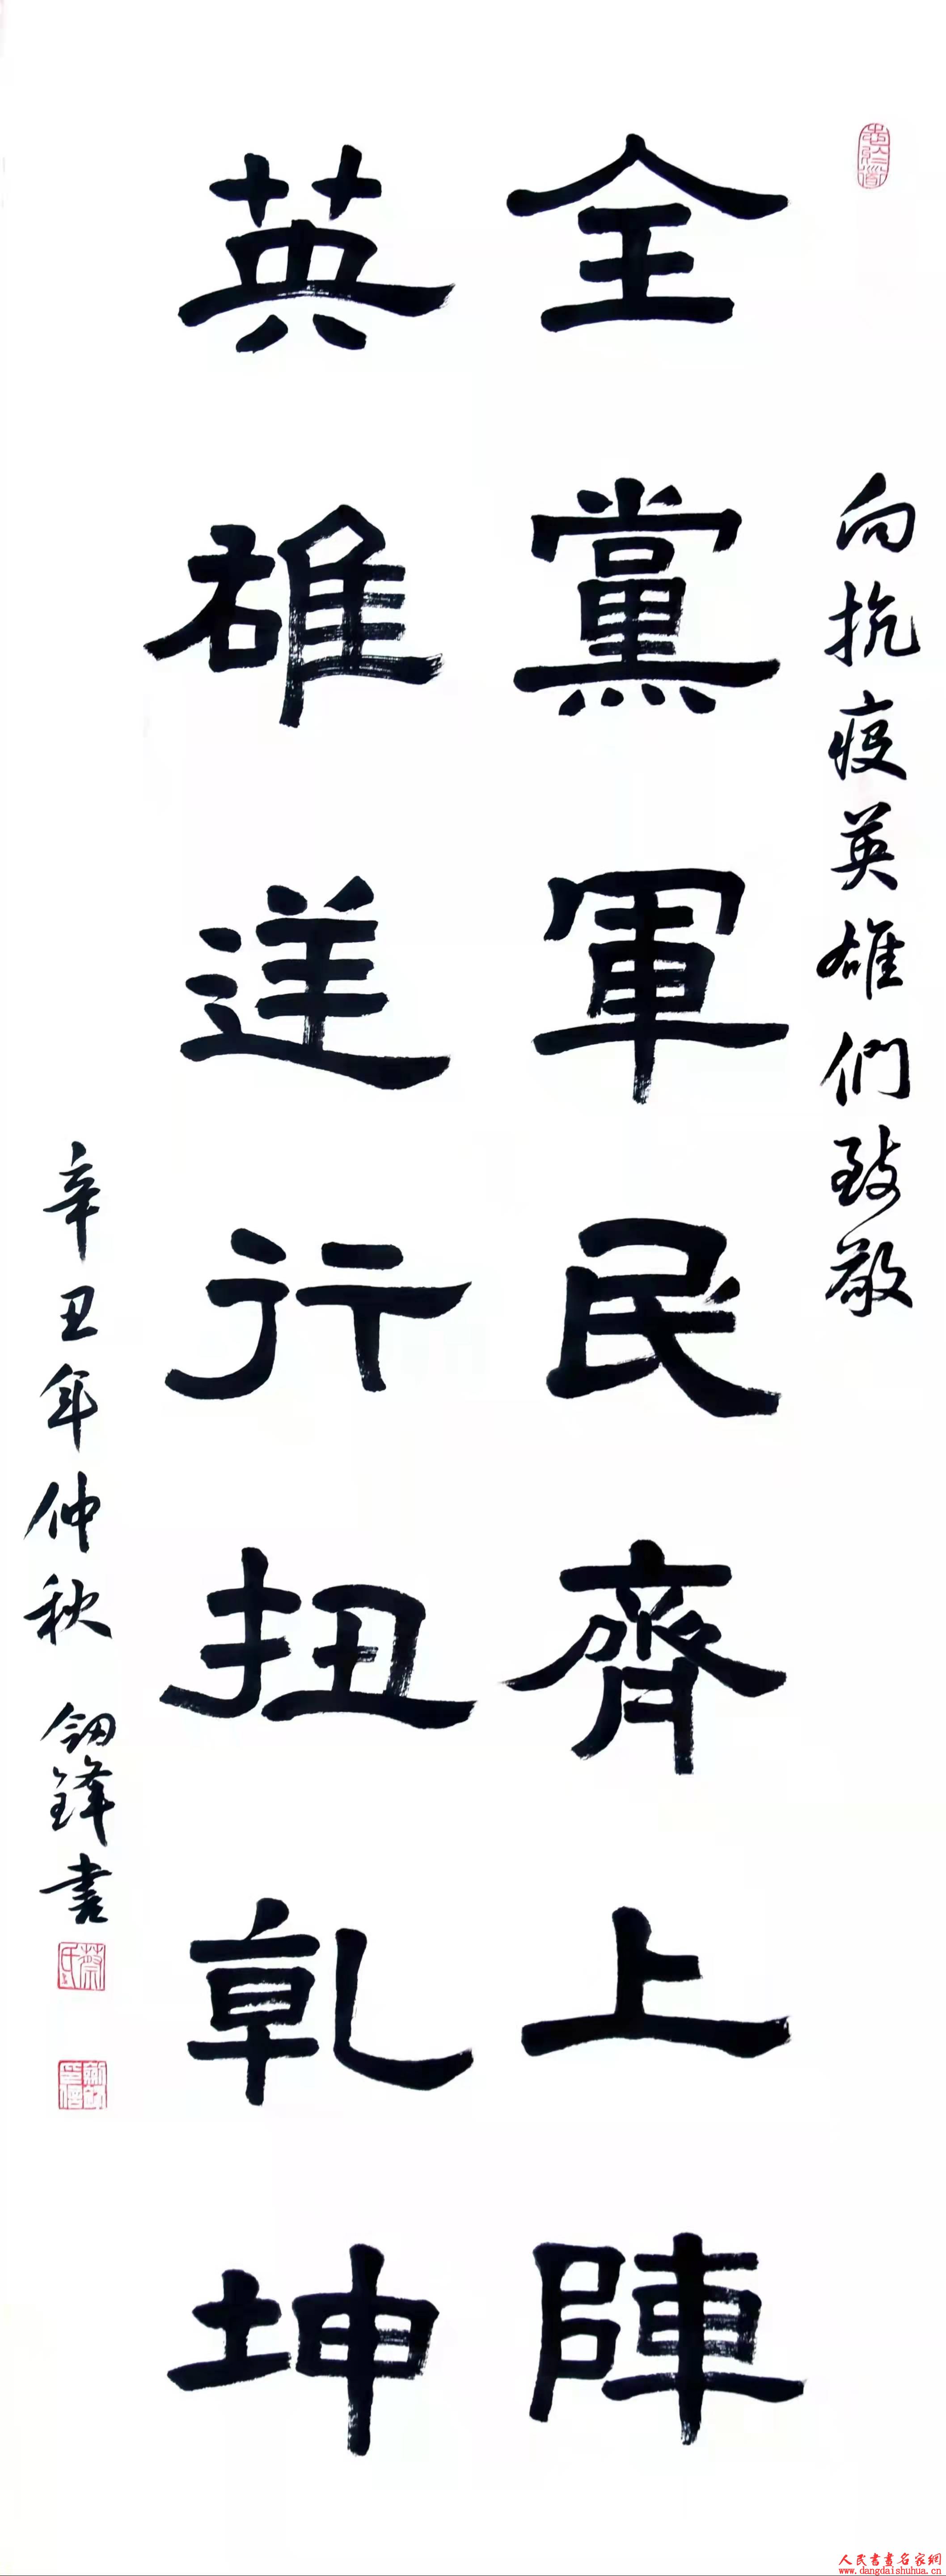 向抗疫英雄們致敬
全黨軍民齊上陣
英雄逆行扭乾坤
辛丑年仲秋 劍鋒書
蔡氏
人民書畫名家網
www.dangdaishuhua.cn